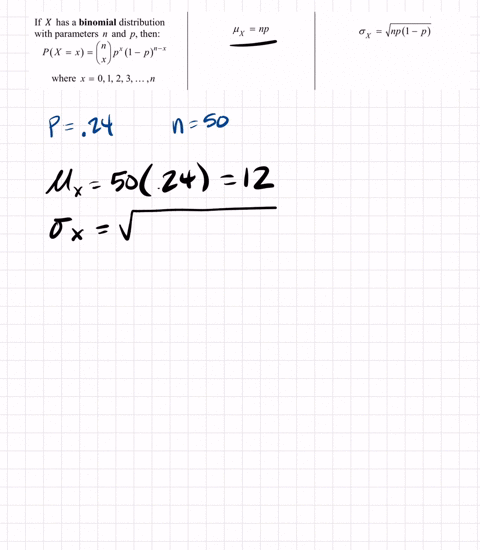 If X has a binomial distribution
with parameters n and p, then:
P(X = x) = (n x) p^x (1 − p)^{n−x}
where x = 0, 1, 2, 3, …, n
μ_X = np
σ_X = √np(1 − p)
P = .24 n = 50
μ_x = 50(.24) = 12
σ_x = √